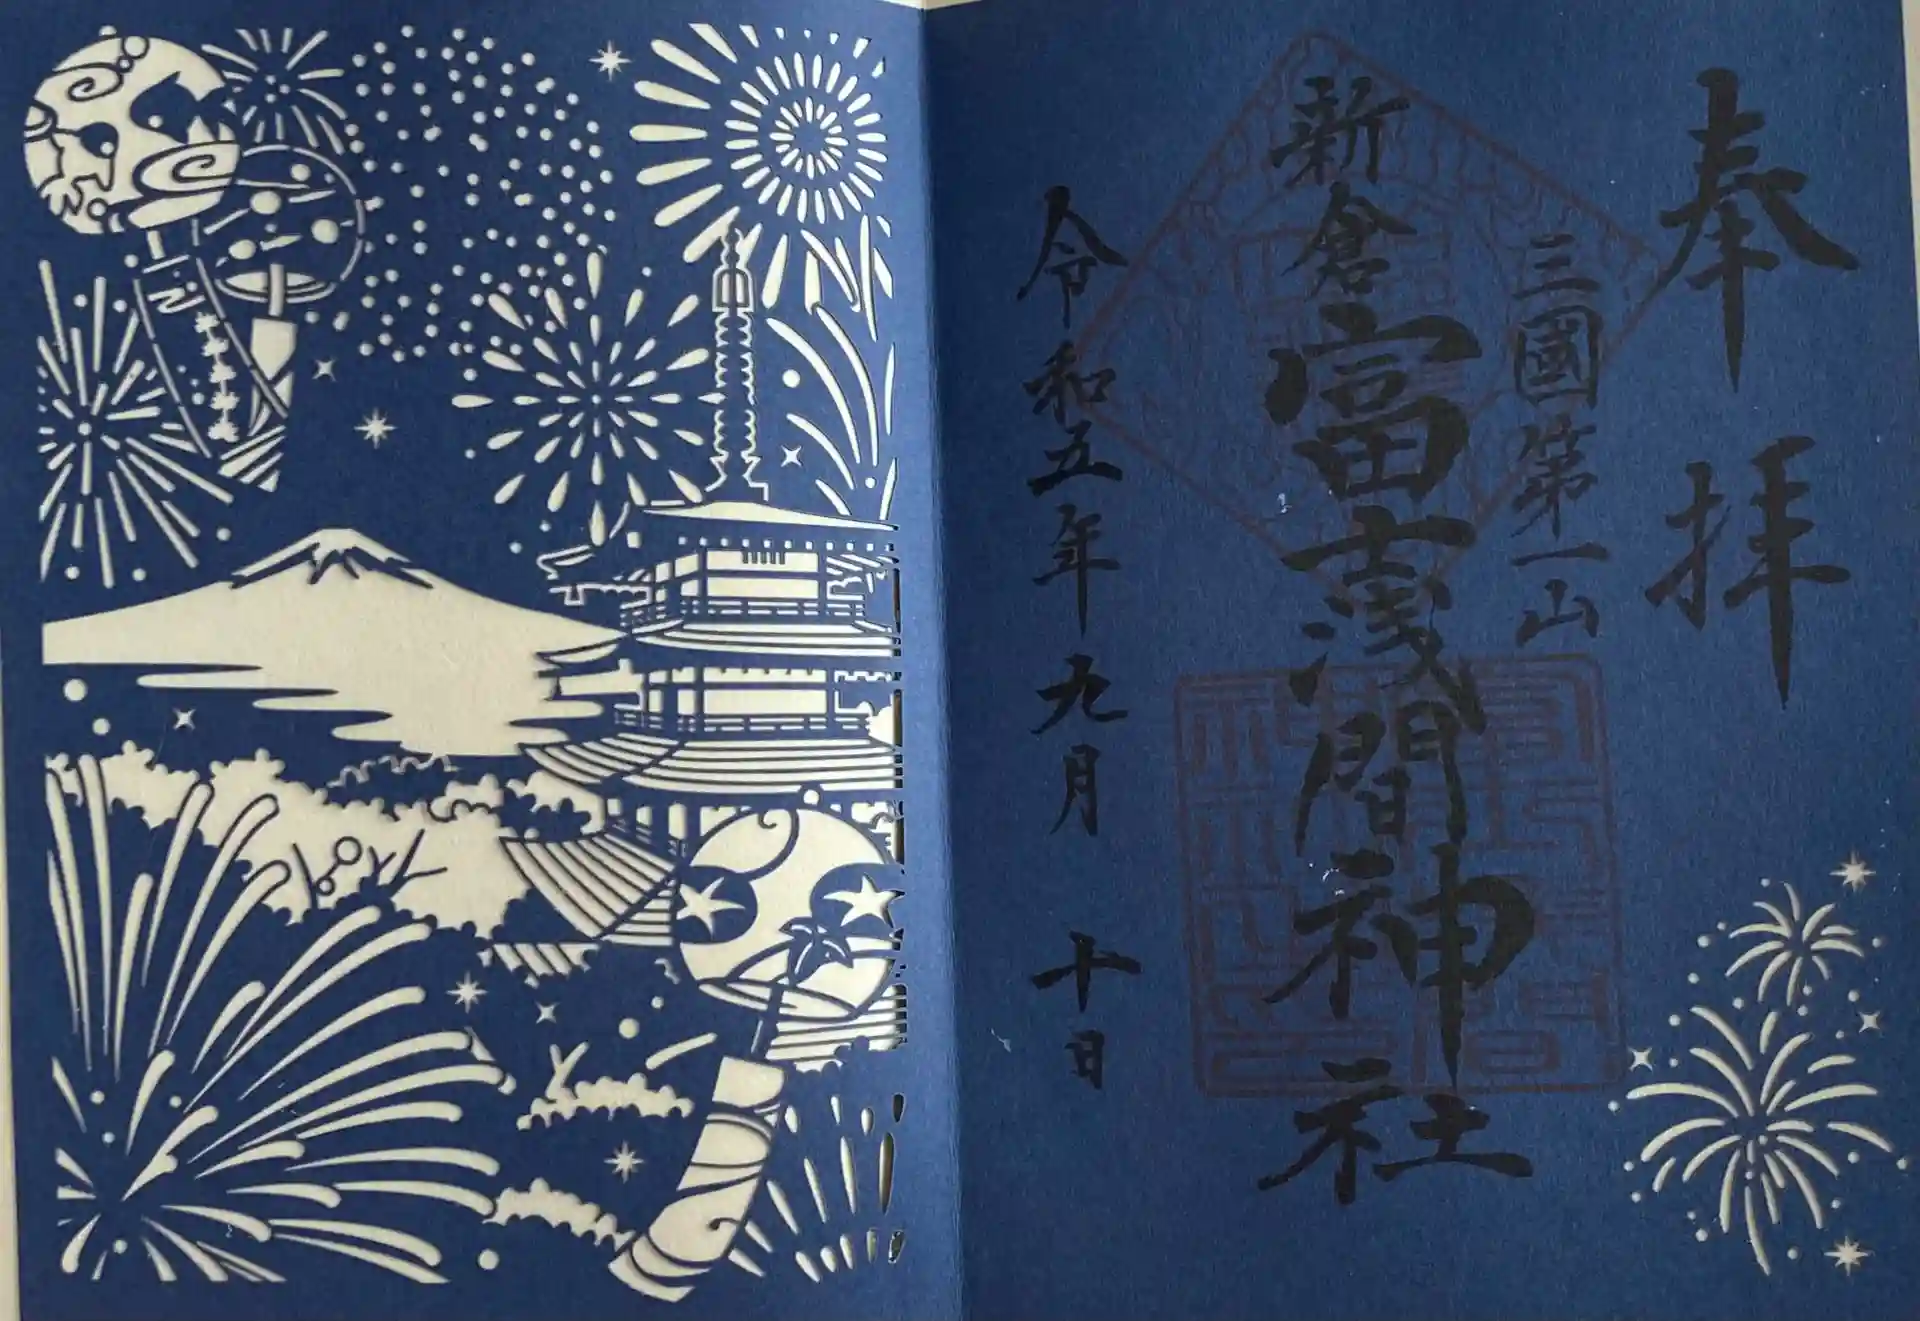 奉拝
三國第一山
新倉富士浅間神社
令和五年九月十日